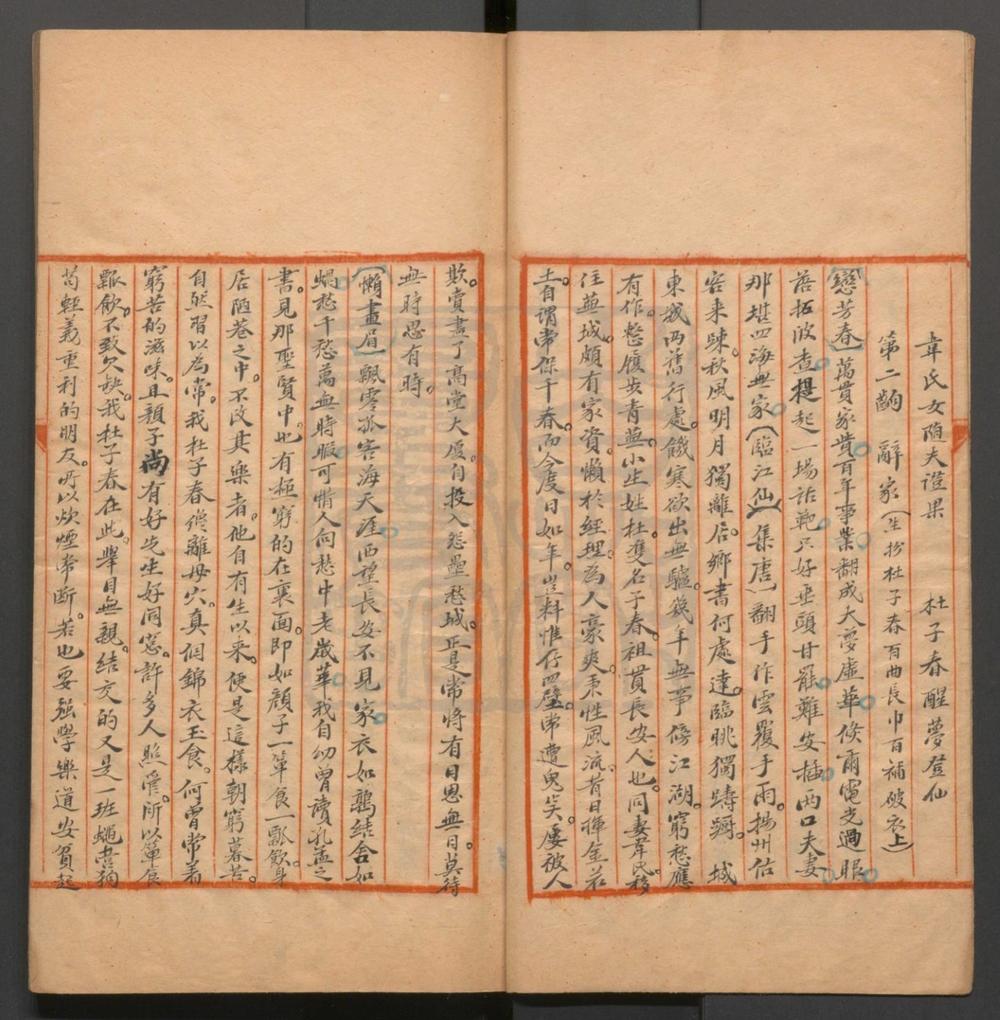 韋氏女随夫證果　杜子春醒夢登仙
第二齣　辭家（生扮杜子春百曲長巾百補破衣上）
〔戀芳春〕萬貫家貲百年事業翻成大夢虛華倐爾電光過眼
落拓波查。提起一場話靶。只好垂頭甘罷難安插。両口夫妻
那堪四海無家〔臨江仙〕〔集唐〕翻手作雲覆手雨。揚州估
客来踈。秋風明月獨離居。鄉書何處達。臨眺獨躊躇。城
東城两舊行處。饑寒欲出無驢。幾年無事傍江湖。窮愁應
有作。愁履步青蕪。小生姓杜。雙名子春。祖貫長安人也。同妻韋氏移
住蕪城。頗有家資。懶於經理。為人豪爽。秉性風流。昔日揮金若
土。自謂常保千春。而今度日如年。豈料惟存四壁。常遭鬼笑。屢被人
欺。賣盡了高堂大厦。自投入怨壘愁城。正是常將有日思無日。莫待
無時思有時。
〔懶畫眉〕飄零孤客海天涯。西望長安不見家。衣如鶉結舍如
蝸。愁千愁萬無時暇。可惜人向愁中老歲華。我自幼曾讀孔孟之
書。見那聖賢中。也有極窮的在裏面。即如顏子一箪食一瓢飲。身
居陋巷之中。不改其樂者。他自有生以来。便是這樣朝窮暮苦。
自然習以為常。我杜子春纔離母穴。真個錦衣玉食。何曾常着
窮苦的滋味。且顏子尚有好先生好同窓。許多人照管。所以箪食
瓢飲。不致欠缺。我杜子春在此。舉目無親。結交的又是一班蠅營狗
苟輕義重利的朋友。所以炊煙常断。若也要强學樂道安貧起